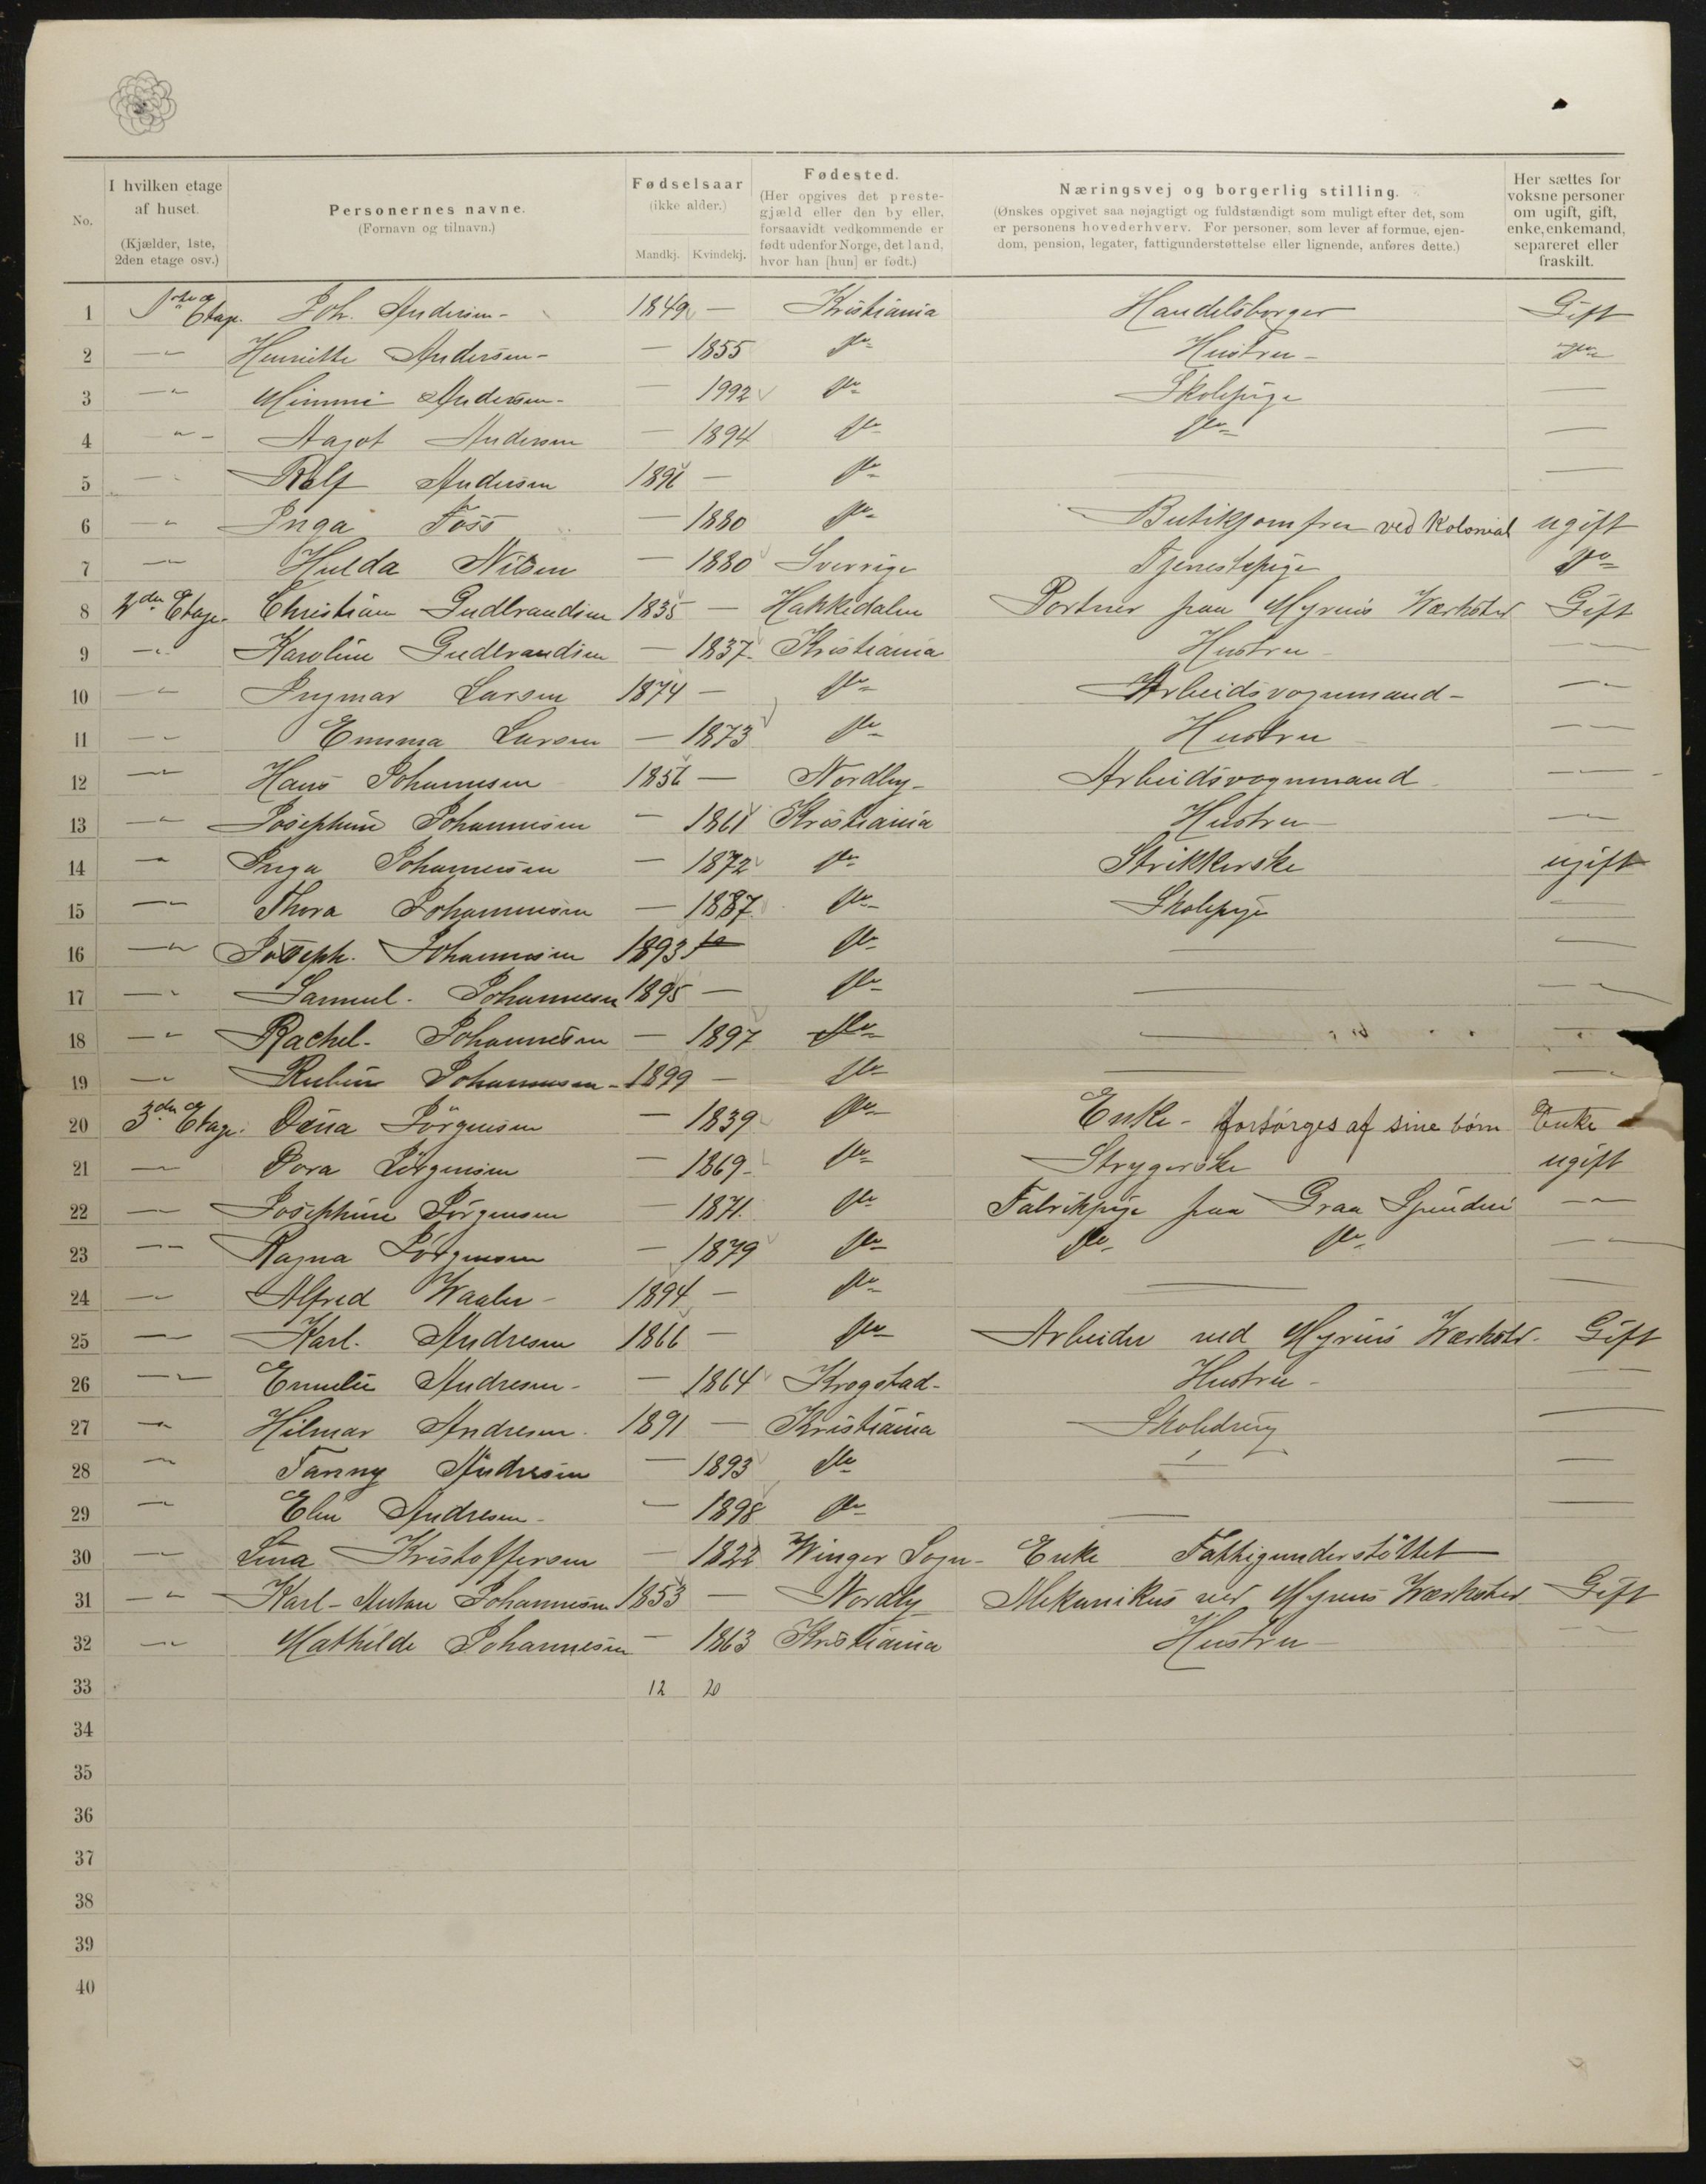 No. | I hvilken etage af huset. (Kjælder, 1ste, 2den etage osv.) | Personernes navne. (Fornavn og tilnavn.) | Fødselsaar (ikke alder.) Mandkj. Kvindekj. | Fødested. (Her opgives det prestegjæld eller den by eller, forsaavidt vedkommende er født udenfor Norge, det land, hvor han [hun] er født.) | Næringsvej og borgerlig stilling. (Ønskes opgivet saa nøjagtigt og fuldstændigt som muligt efter det, som er personens hovederhverv. For personer, som lever af formue, ejendom, pension, legater, fattigunderstøttelse eller lignende, anføres dette.) | Her sættes for voksne personer om ugift, gift, enke, enkemand, separeret eller fraskilt.
1 1ste Etage. Joh. Andersen- 1849 — Kristiania Handelsborger Gift
2 —"— Henriette Andersen- — 1855 do Hustru- do
3 —"— Mimmi Andersen- — 1992 do Skolepige —
4 —"— Aagot Andersen — 1894 do do —
5 —"— Rolf Andersen 1896 — do — —
6 —"— Inga Foss — 1880 do Butikjomfru ved Kolonial ugift
7 —"— Hulda Nilsen — 1880 Sverrige Tjenestepige do
8 2den Etage. Christian Gudbrandsen 1835 — Hakkedalen Portner paa Myrens Værksted Gift
9 —"— Karoline Gudbrandsen — 1837. Kristiania Hustru —"—
10 —"— Ingmar Larsen 1874 — do Arbeidsvognmand- —"—
11 —"— Emma Larsen — 1873 do Hustru —"—
12 —"— Hans Johannesen 1856 — Nordby- Arbeidsvognmand —"—
13 —"— Josephine Johannesen — 1861 Kristiania Hustru —"—
14 —"— Inga Johannesen — 1872 do Strikkerske ugift
15 —"— Thora Johannesen — 1887 do Skolepige —
16 —"— Joseph. Johannesen 1893 do — —
17 —"— Samuel. Johannesen 1895 — do — —"—
18 —"— Rachel- Johannesen — 1897 do — —
19 —"— Rubin Johannesen- 1899 — do — —
20 3die Etage. Dina Jörgensen — 1839 do Enke- forsørges af sine børn Enke
21 —"— Dora Jörgensen — 1869- do Strygerske ugift
22 —"— Josephine Jörgensen — 1871. do Fabrikpige paa Graa Spinderi —"—
23 —"— Ragna Jörgensen — 1879 do do do —"—
24 —"— Alfred Waaler- 1894 — do — —
25 —"— Karl. Andresen 1866 — do Arbeider ved Myrens Værksted. Gift
26 —"— Emelie Andresen- — 1864 Krogstad- Hustru- —
27 —"— Hilmar Andresen. 1891 — Kristiania Skoledreng —
28 —"— Fanny Andresen — 1893 do — —
29 —"— Elin Andresen- — 1898 do — —
30 —"— Lina Kristoffersen — 1822 Winger Sogn- Enke Fattigunderstöttet
31 —"— Karl-Anton Johannesen 1853 — Nordby Mekanikus ved Myrens Værksted Gift
32 —"— Mathilde Johannesen — 1863 Kristiania Hustru- —"—
33 12 20
34
35
36
37
38
39
40